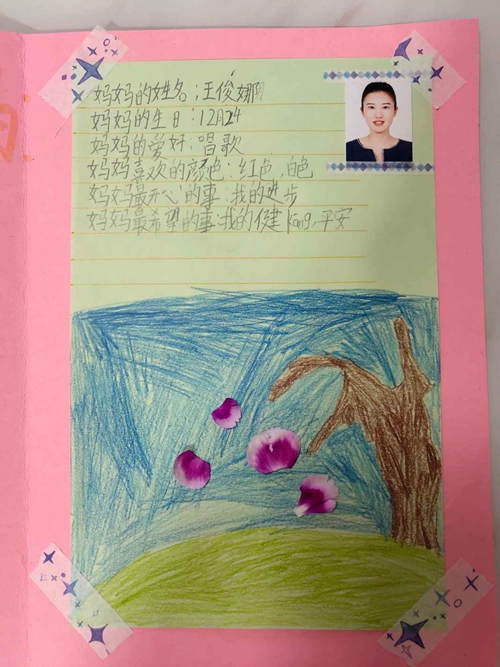 妈妈的姓名：王俊娜
妈妈的生日：12月24
妈妈的爱好：唱歌
妈妈喜欢的颜色：红色，白色
妈妈最开心的事：我的进步
妈妈最希望的事：我的健kang，平安